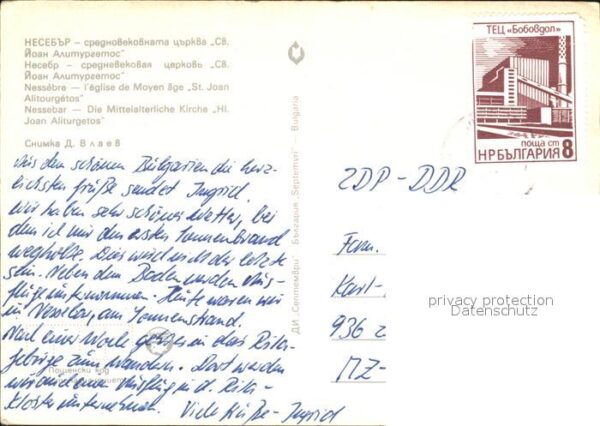 НЕСЕБЪР – средновековната църква „Св.
Йоан Алитургетос"
Несебр – средневековая церковь „Св.
Йоан Алитургетос"
Nessèbre – l'église de Moyen âge „St. Joan
Alitourgétos"
Nessebar – Die Mittelalterliche Kirche „Hl.
Joan Aliturgetos"
Снимка Д. Влаев
Aus dem schönen Bulgarien die herz-
lichsten Grüße sendet Ingrid.
Wir haben sehr schönes Wetter, bei
dem ich mir den ersten Sonnenbrand
weghole. Dies wird nicht der letzte
sein. Neben dem Baden werden Aus-
flüge unternommen. Heute waren wir
in Nessebar, am Sonnenstrand.
Nach einer Woche geht es in das Rila-
gebirge zum Wandern. Dort werden
wir auch einen Ausflug in d. Rila-
kloster unternehmen. Viele Grüße – Ingrid
Пощенски код
ДИ „Септември" България „Septemvri" Bulgaria
ТЕЦ „Бобовдол"
поща ст 8
НР БЪЛГАРИЯ
ZDP – DDR
Fam.
Karl-
936
MZ-
privacy protection
Datenschutz